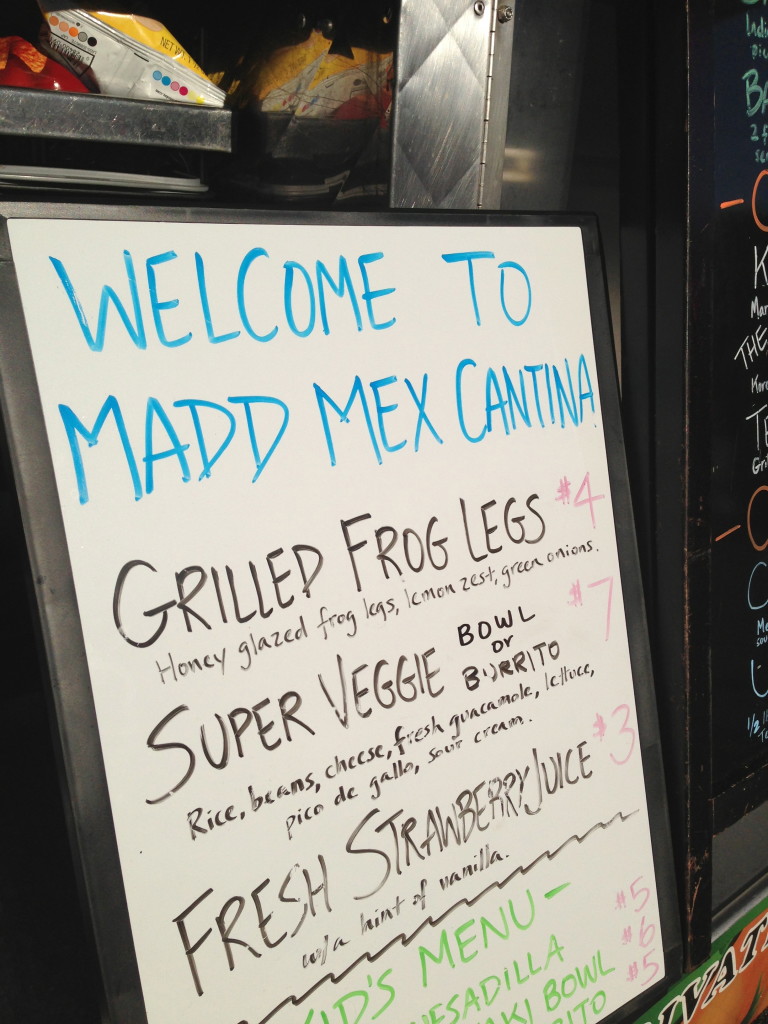 WELCOME TO
MADD MEX CANTINA
GRILLED FROG LEGS $4
Honey glazed frog legs, lemon zest, green onions.
SUPER VEGGIE BOWL or BURRITO $7
Rice, beans, cheese, fresh guacamole, lettuce,
pico de gallo, sour cream.
FRESH STRAWBERRY JUICE $3
w/a hint of vanilla.
MENU - $5
$6
BOWL $5
THE